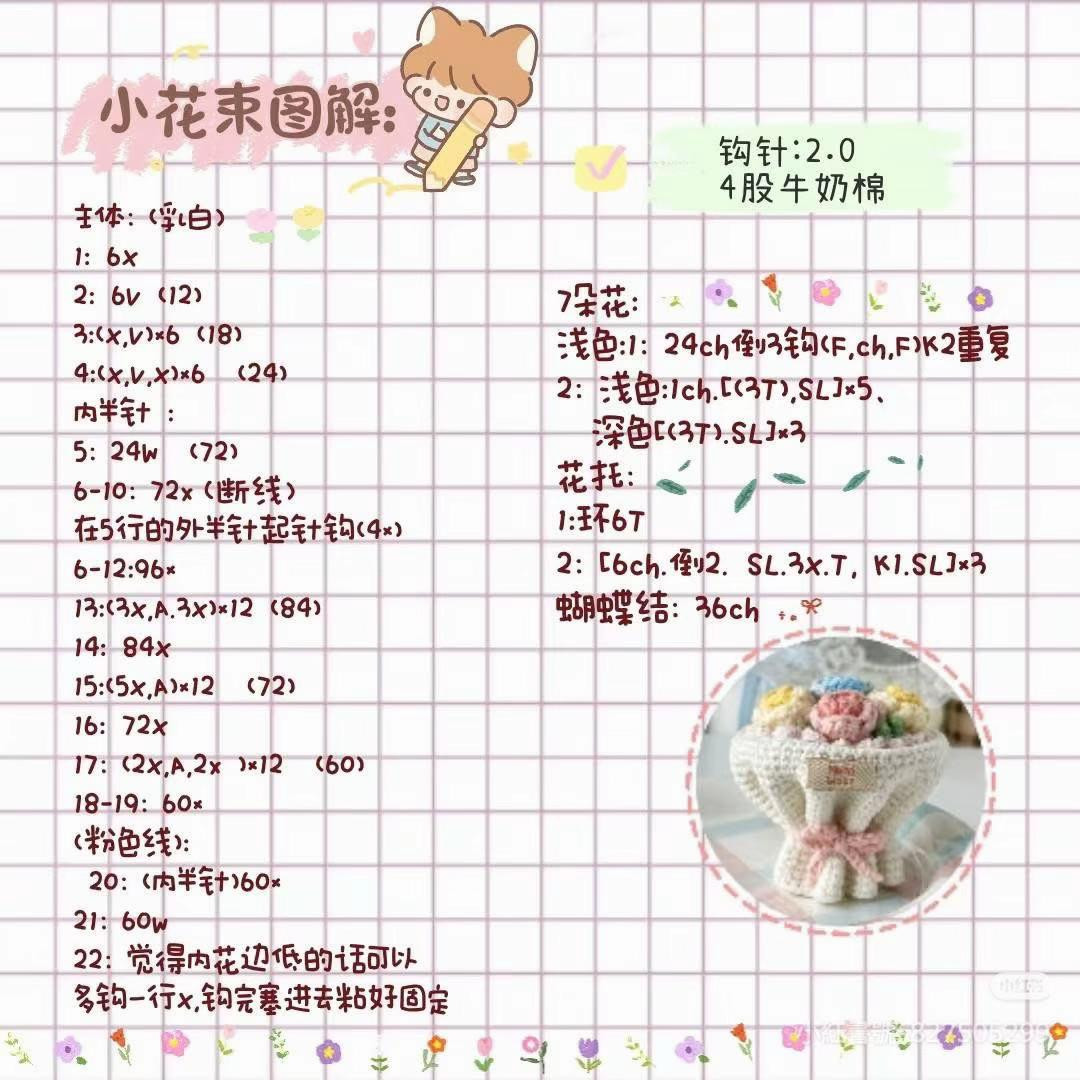 小花束图解:
钩针:2.0
4股牛奶棉
主体:(乳白)
1: 6x
2: 6v (12)
3:(x,v)×6 (18)
4:(x,v,x)×6 (24)
内半针:
5: 24w (72)
6-10: 72x(断线)
在5行的外半针起针钩(4×)
6-12:96×
13:(3x,A.3x)×12 (84)
14: 84x
15:(5x,A)×12 (72)
16: 72x
17: (2x,A,2x )×12 (60)
18-19: 60×
(粉色线):
20: (内半针)60×
21: 60w
22: 觉得内花边低的话可以
多钩一行x,钩完塞进去粘好固定
7朵花:
浅色:1: 24ch倒3钩(F,ch,F)K2重复
2: 浅色:1ch.[(3T),SL]×5、
深色[(3T).SL]×3
花托:
1:环6T
2: [6ch.倒2. SL.3X.T, K1.SL]×3
蝴蝶结: 36ch
小红书
小红书号:827505299